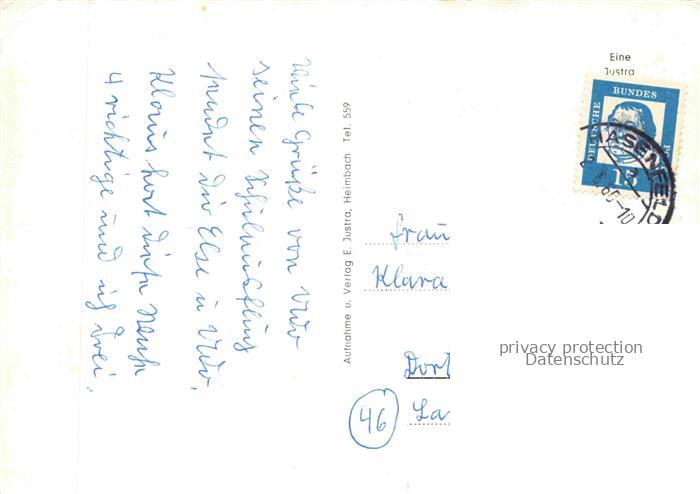 Viele Grüße von Udo
seinen Schulausflug
sendet Dir Else u Udo.
Klaus hat diese
4 richtige und ich drei.
Aufnahme u. Verlag E. Justra, Heimbach Tel. 559
Eine
Justra
DEUTSCHE
BUNDES
15
ASENFELD
-10
Frau
Klara
Dort
46
La
privacy protection
Datenschutz